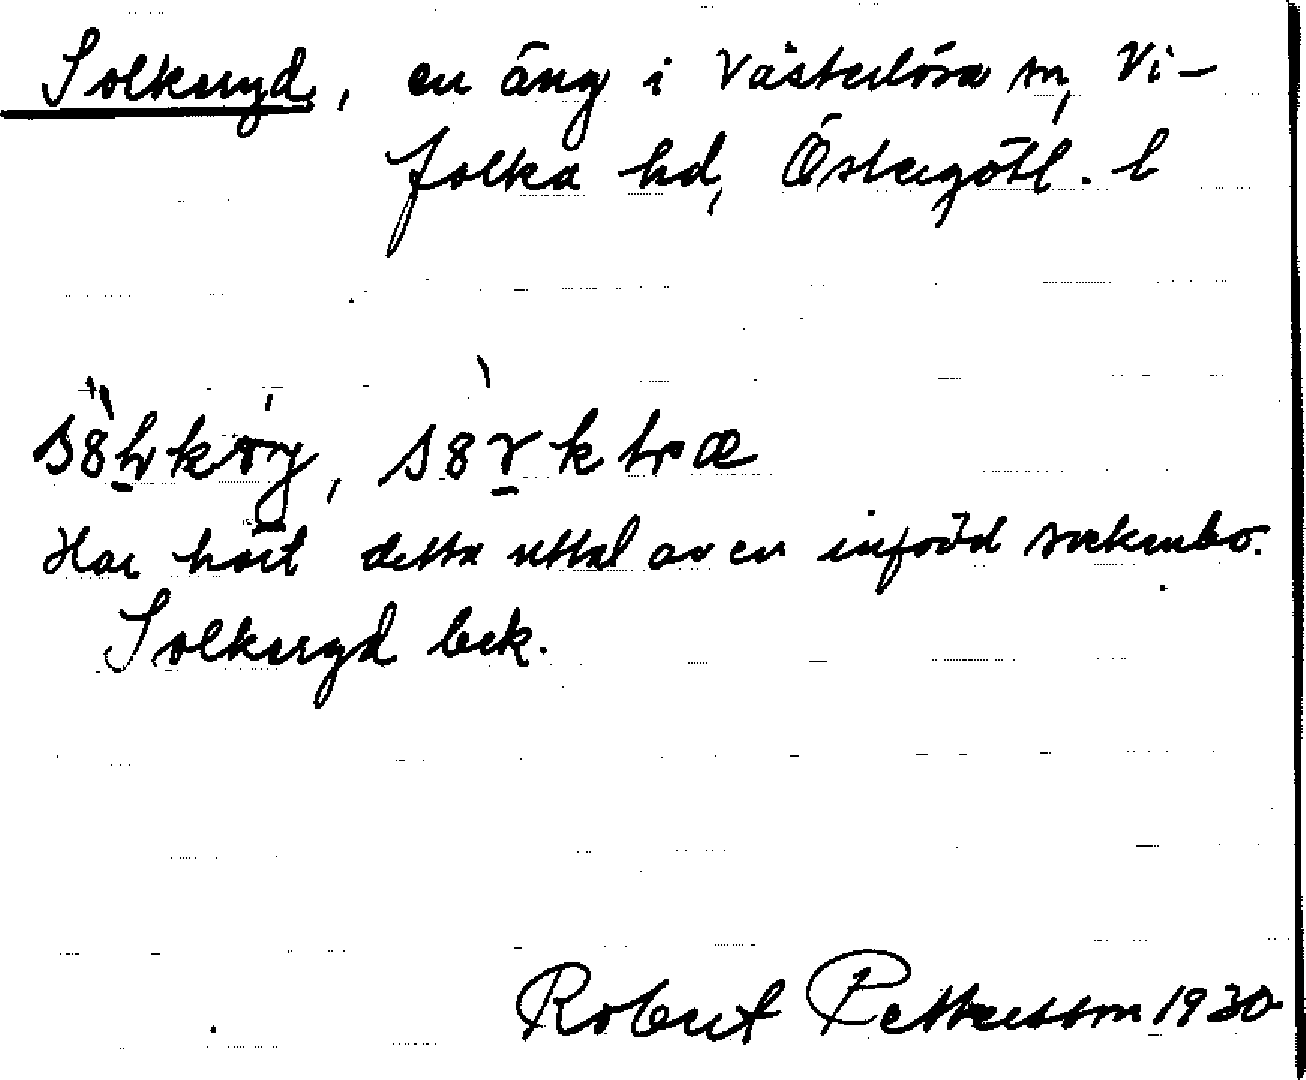 Solkuryd, en äng i Västerlösa sn, Vi-
folka hd, Östergötl. l
Har hört detta uttal av en infödd sockenbo.
Solkuryd bek.
Robert Pettersson 1930